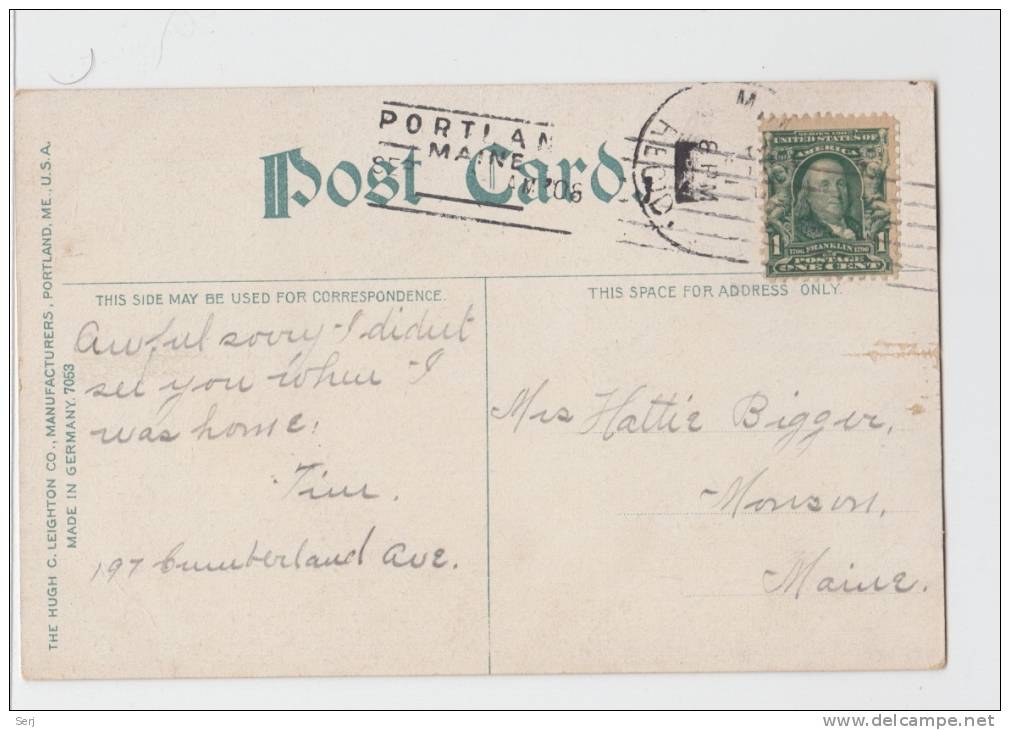 PORTLAN
MAINE
AM '06
Post Card.
REC'D.
8 PM
SERIES 1902
UNITED STATES OF
AMERICA
1 1706 FRANKLIN 1790 1
POSTAGE
ONE CENT
THIS SIDE MAY BE USED FOR CORRESPONDENCE.
THIS SPACE FOR ADDRESS ONLY.
Awful sorry I didn't
see you when I
was home.
Tim.
197 Cumberland Ave.
Mrs Hattie Bigger,
Monson,
Maine.
THE HUGH C. LEIGHTON CO., MANUFACTURERS, PORTLAND, ME., U.S.A.
MADE IN GERMANY. 7053
Serj
www.delcampe.net